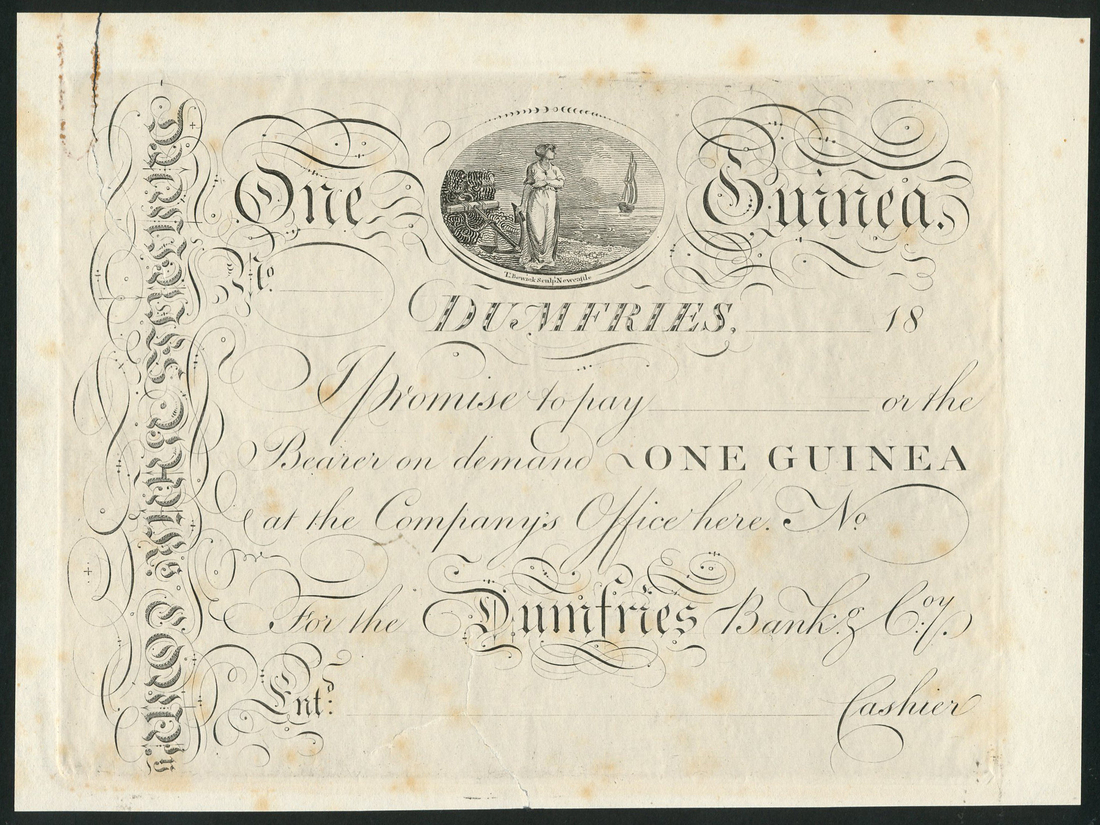 One Guinea.
T. Bewick Sculp. Newcastle
No
DUMFRIES, 18
I promise to pay or the
Bearer on demand ONE GUINEA
at the Company's Office here. No
For the Dumfries Bankg. Coy.
Entd. Cashier